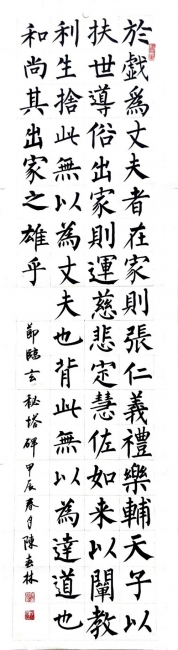 於戲爲丈夫者在家則張仁義禮樂輔天子以
扶世導俗出家則運慈悲定慧佐如来以闡教
利生捨此無以為丈夫也背此無以為達道也
和尚其出家之雄乎
節臨玄秘塔碑甲辰春月陳林